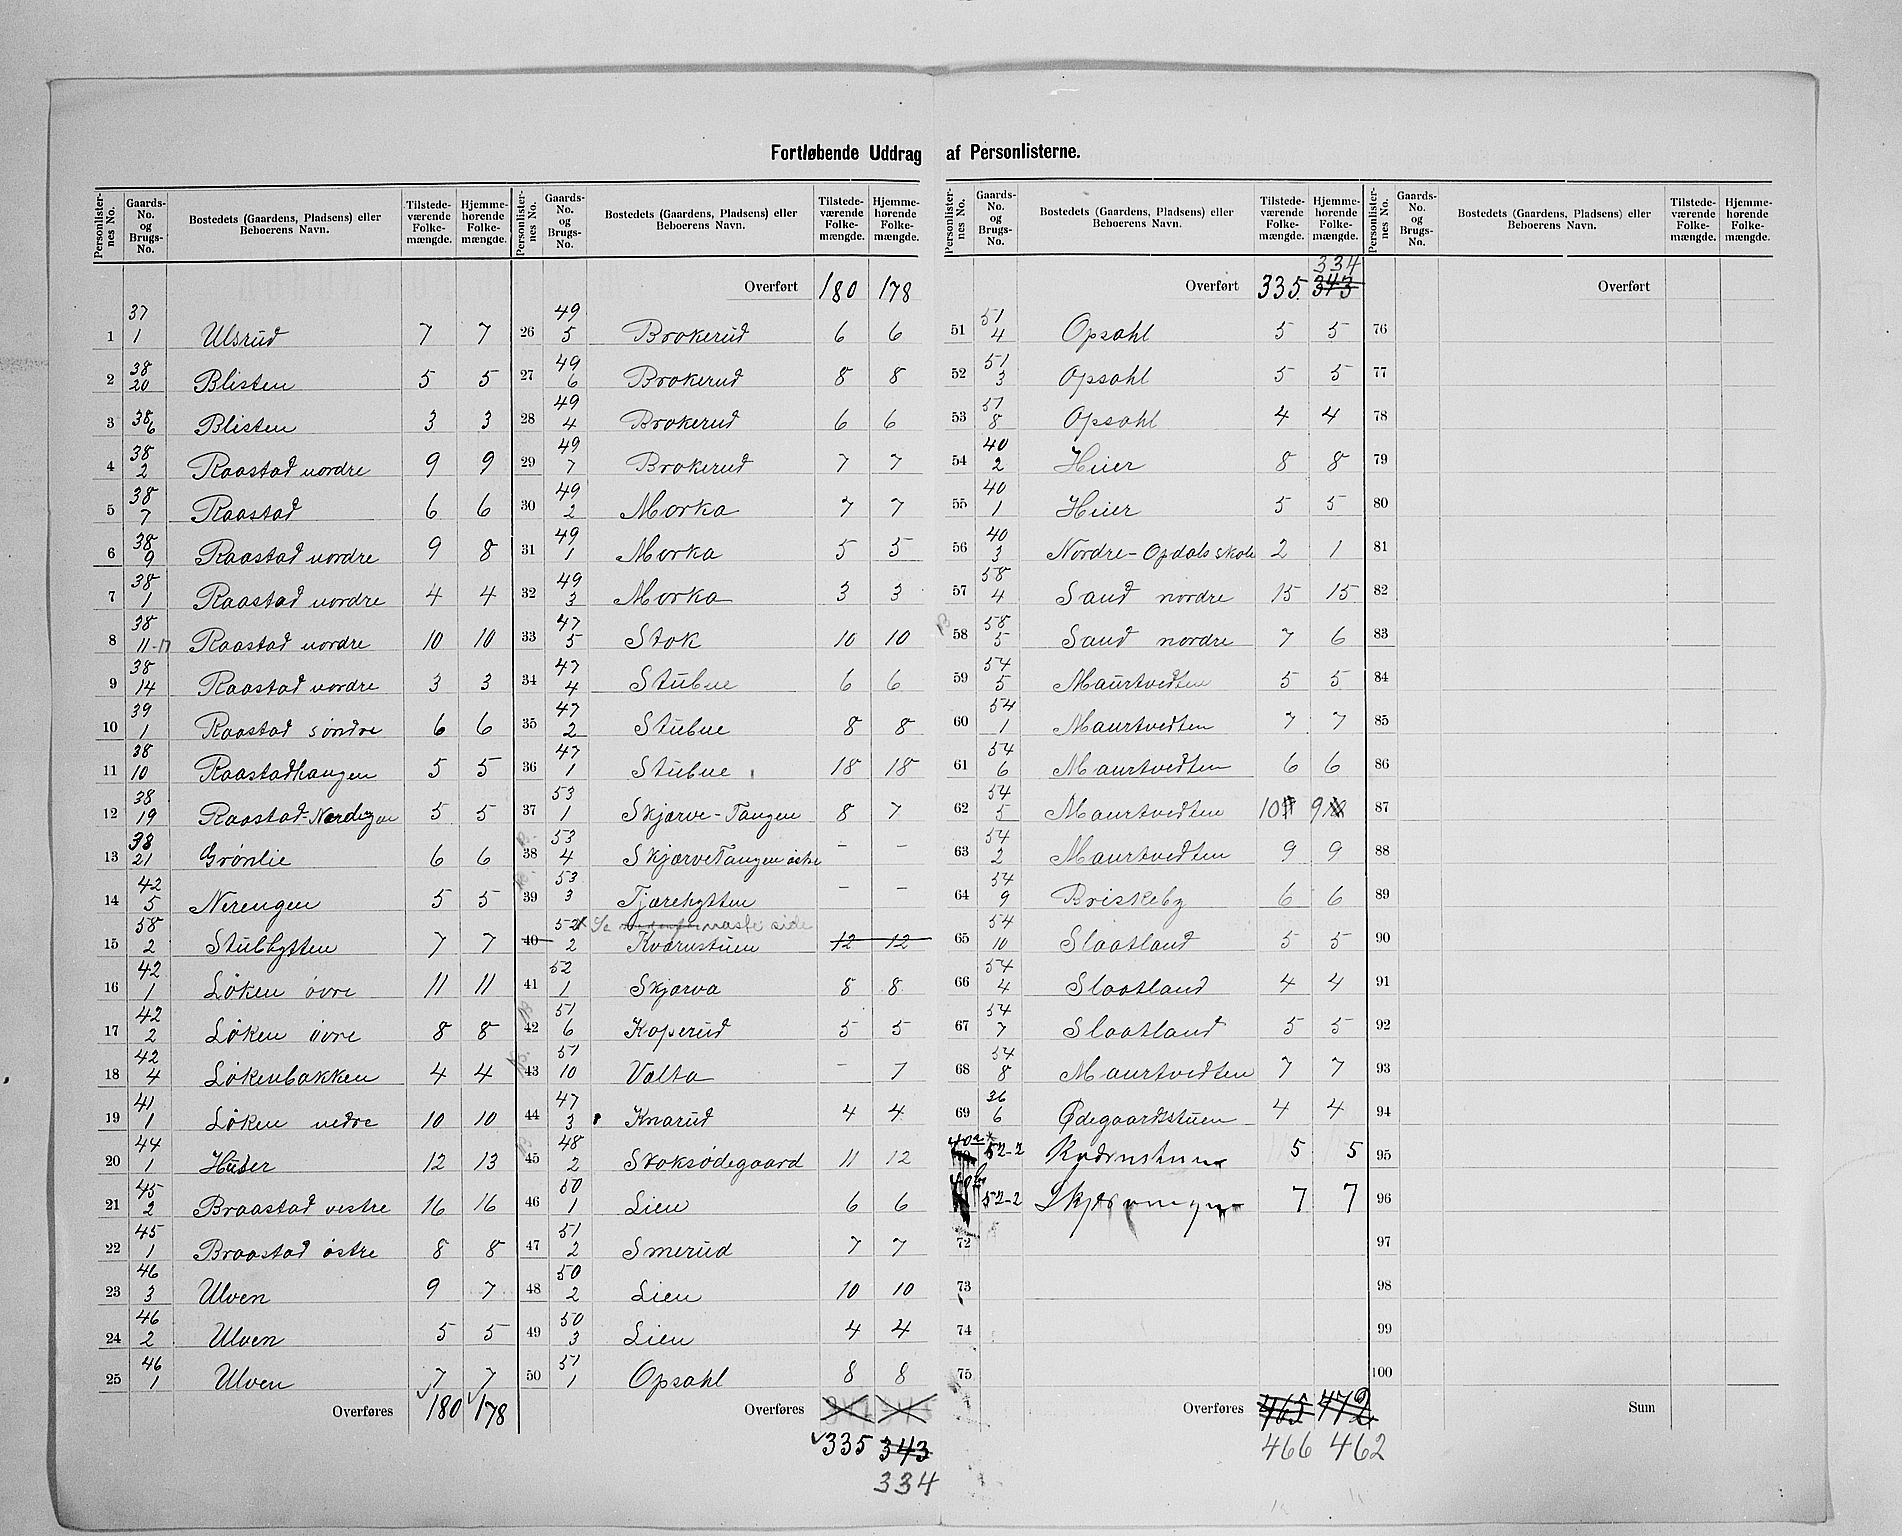 Fortløbende Uddrag af Personlisternes.
Personlister-nes No. Gaards-No. og Brugs-No. Bostedets (Gaardens, Pladsens) eller Beboerens Navn. Tilstede-værende Folke-mængde. Hjemme-hørende Folke-mængde.
1 37 1 Ulsrud 7 7
2 38 20 Blisten 5 5
3 38 6 Blisten 3 3
4 38 2 Raastad nordre 9 9
5 38 7 Raastad 6 6
6 38 9 Raastad nordre 9 8
7 38 1 Raastad nordre 4 4
8 38 11-17 Raastad nordre 10 10
9 38 14 Raastad nordre 3 3
10 39 1 Raastad söndre 6 6
11 38 10 Raastadhaugen 5 5
12 38 19 Raastad-Nordigen 5 5
13 38 21 Grönlie 6 6
14 42 5 Nerengen 5 5
15 58 2 Stubhytten 7 7
16 42 1 Löken övre 11 11
17 42 2 Löken övre 8 8
18 42 4 Lökenbakken 4 4
19 41 1 Löken nedre 10 10
20 44 1 Huser 12 13
21 45 2 Braastad vestre 16 16
22 45 1 Braastad östre 8 8
23 46 3 Ulven 9 7
24 46 2 Ulven 5 5
25 46 1 Ulven 7 7
Overføres 180 178
Personlister-nes No. Gaards-No. og Brugs-No. Bostedets (Gaardens, Pladsens) eller Beboerens Navn. Tilstede-værende Folke-mængde. Hjemme-hørende Folke-mængde.
Overført 180 178
26 49 5 Brokerud 6 6
27 49 6 Brokerud 8 8
28 49 4 Brokerud 6 6
29 49 7 Brokerud 7 7
30 49 2 Morka 7 7
31 49 1 Morka 5 5
32 49 3 Morka 3 3
33 47 5 Stok 10 10
34 47 4 Stubue 6 6
35 47 2 Stubue 8 8
36 47 1 Stubue 18 18
37 53 1 Skjærve-Tangen 8 7
38 53 4 SkjærveTangen östre - -
39 53 3 Tjærehytten - -
Se næste side
40 52 2 Kværnstuen 12 12
41 52 1 Skjærva 8 8
42 51 6 Koperud 5 5
43 51 10 Valta - 7
44 47 3 Knarud 4 4
45 48 2 Stoksödegaard 11 12
46 50 1 Lien 6 6
47 51 2 Smerud 7 7
48 50 2 Lien 10 10
49 50 3 Lien 4 4
50 51 1 Opsahl 8 8
Overføres
335 343
334
Personlister-nes No. Gaards-No. og Brugs-No. Bostedets (Gaardens, Pladsens) eller Beboerens Navn. Tilstede-værende Folke-mængde. Hjemme-hørende Folke-mængde.
334
Overført 335 343
51 51 4 Opsahl 5 5
52 51 3 Opsahl 5 5
53 51 8 Opsahl 4 4
54 40 2 Heier 8 8
55 40 1 Heier 5 5
56 40 3 Nordre-Opdals skole 2 1
57 58 4 Sand nordre 15 15
58 58 5 Sand nordre 7 6
59 54 5 Maurtvedten 5 5
60 54 1 Maurtvedten 7 7
61 54 6 Maurtvedten 6 6
62 54 5 Maurtvedten 10 9
63 54 2 Maurtvedten 9 9
64 54 9 Briskeby 6 6
65 54 10 Slaatland 5 5
66 54 4 Slaatland 4 4
67 54 7 Slaatland 5 5
68 54 8 Maurtvedten 7 7
69 36 6 Ødegaardsstuen 4 4
40a 52-2 Kværnstuen 5 5
40b 52-2 7 7
72
73
74
75
Overføres 465 472
466 462
Personlister-nes No. Gaards-No. og Brugs-No. Bostedets (Gaardens, Pladsens) eller Beboerens Navn. Tilstede-værende Folke-mængde. Hjemme-hørende Folke-mængde.
Overført
76
77
78
79
80
81
82
83
84
85
86
87
88
89
90
91
92
93
94
95
96
97
98
99
100
Sum